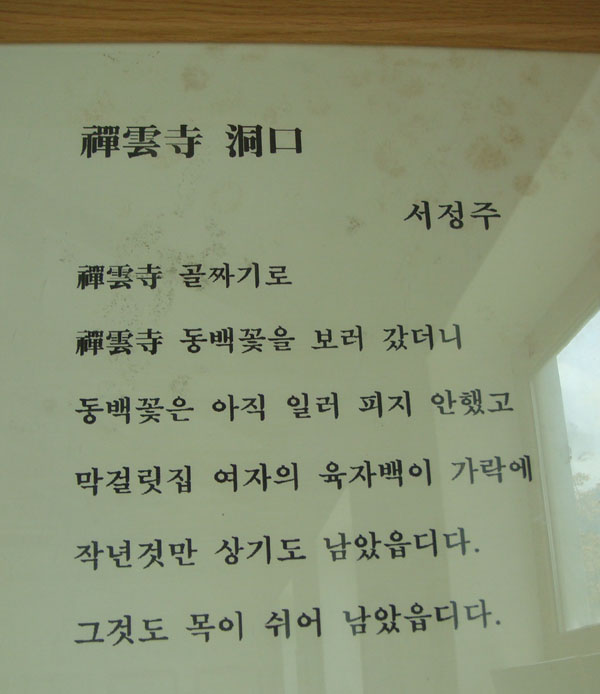 禪雲寺 洞口
서정주
禪雲寺 골짜기로
禪雲寺 동백꽃을 보러 갔더니
동백꽃은 아직 일러 피지 안했고
막걸릿집 여자의 육자백이 가락에
작년것만 상기도 남았읍디다.
그것도 목이 쉬어 남았읍디다.